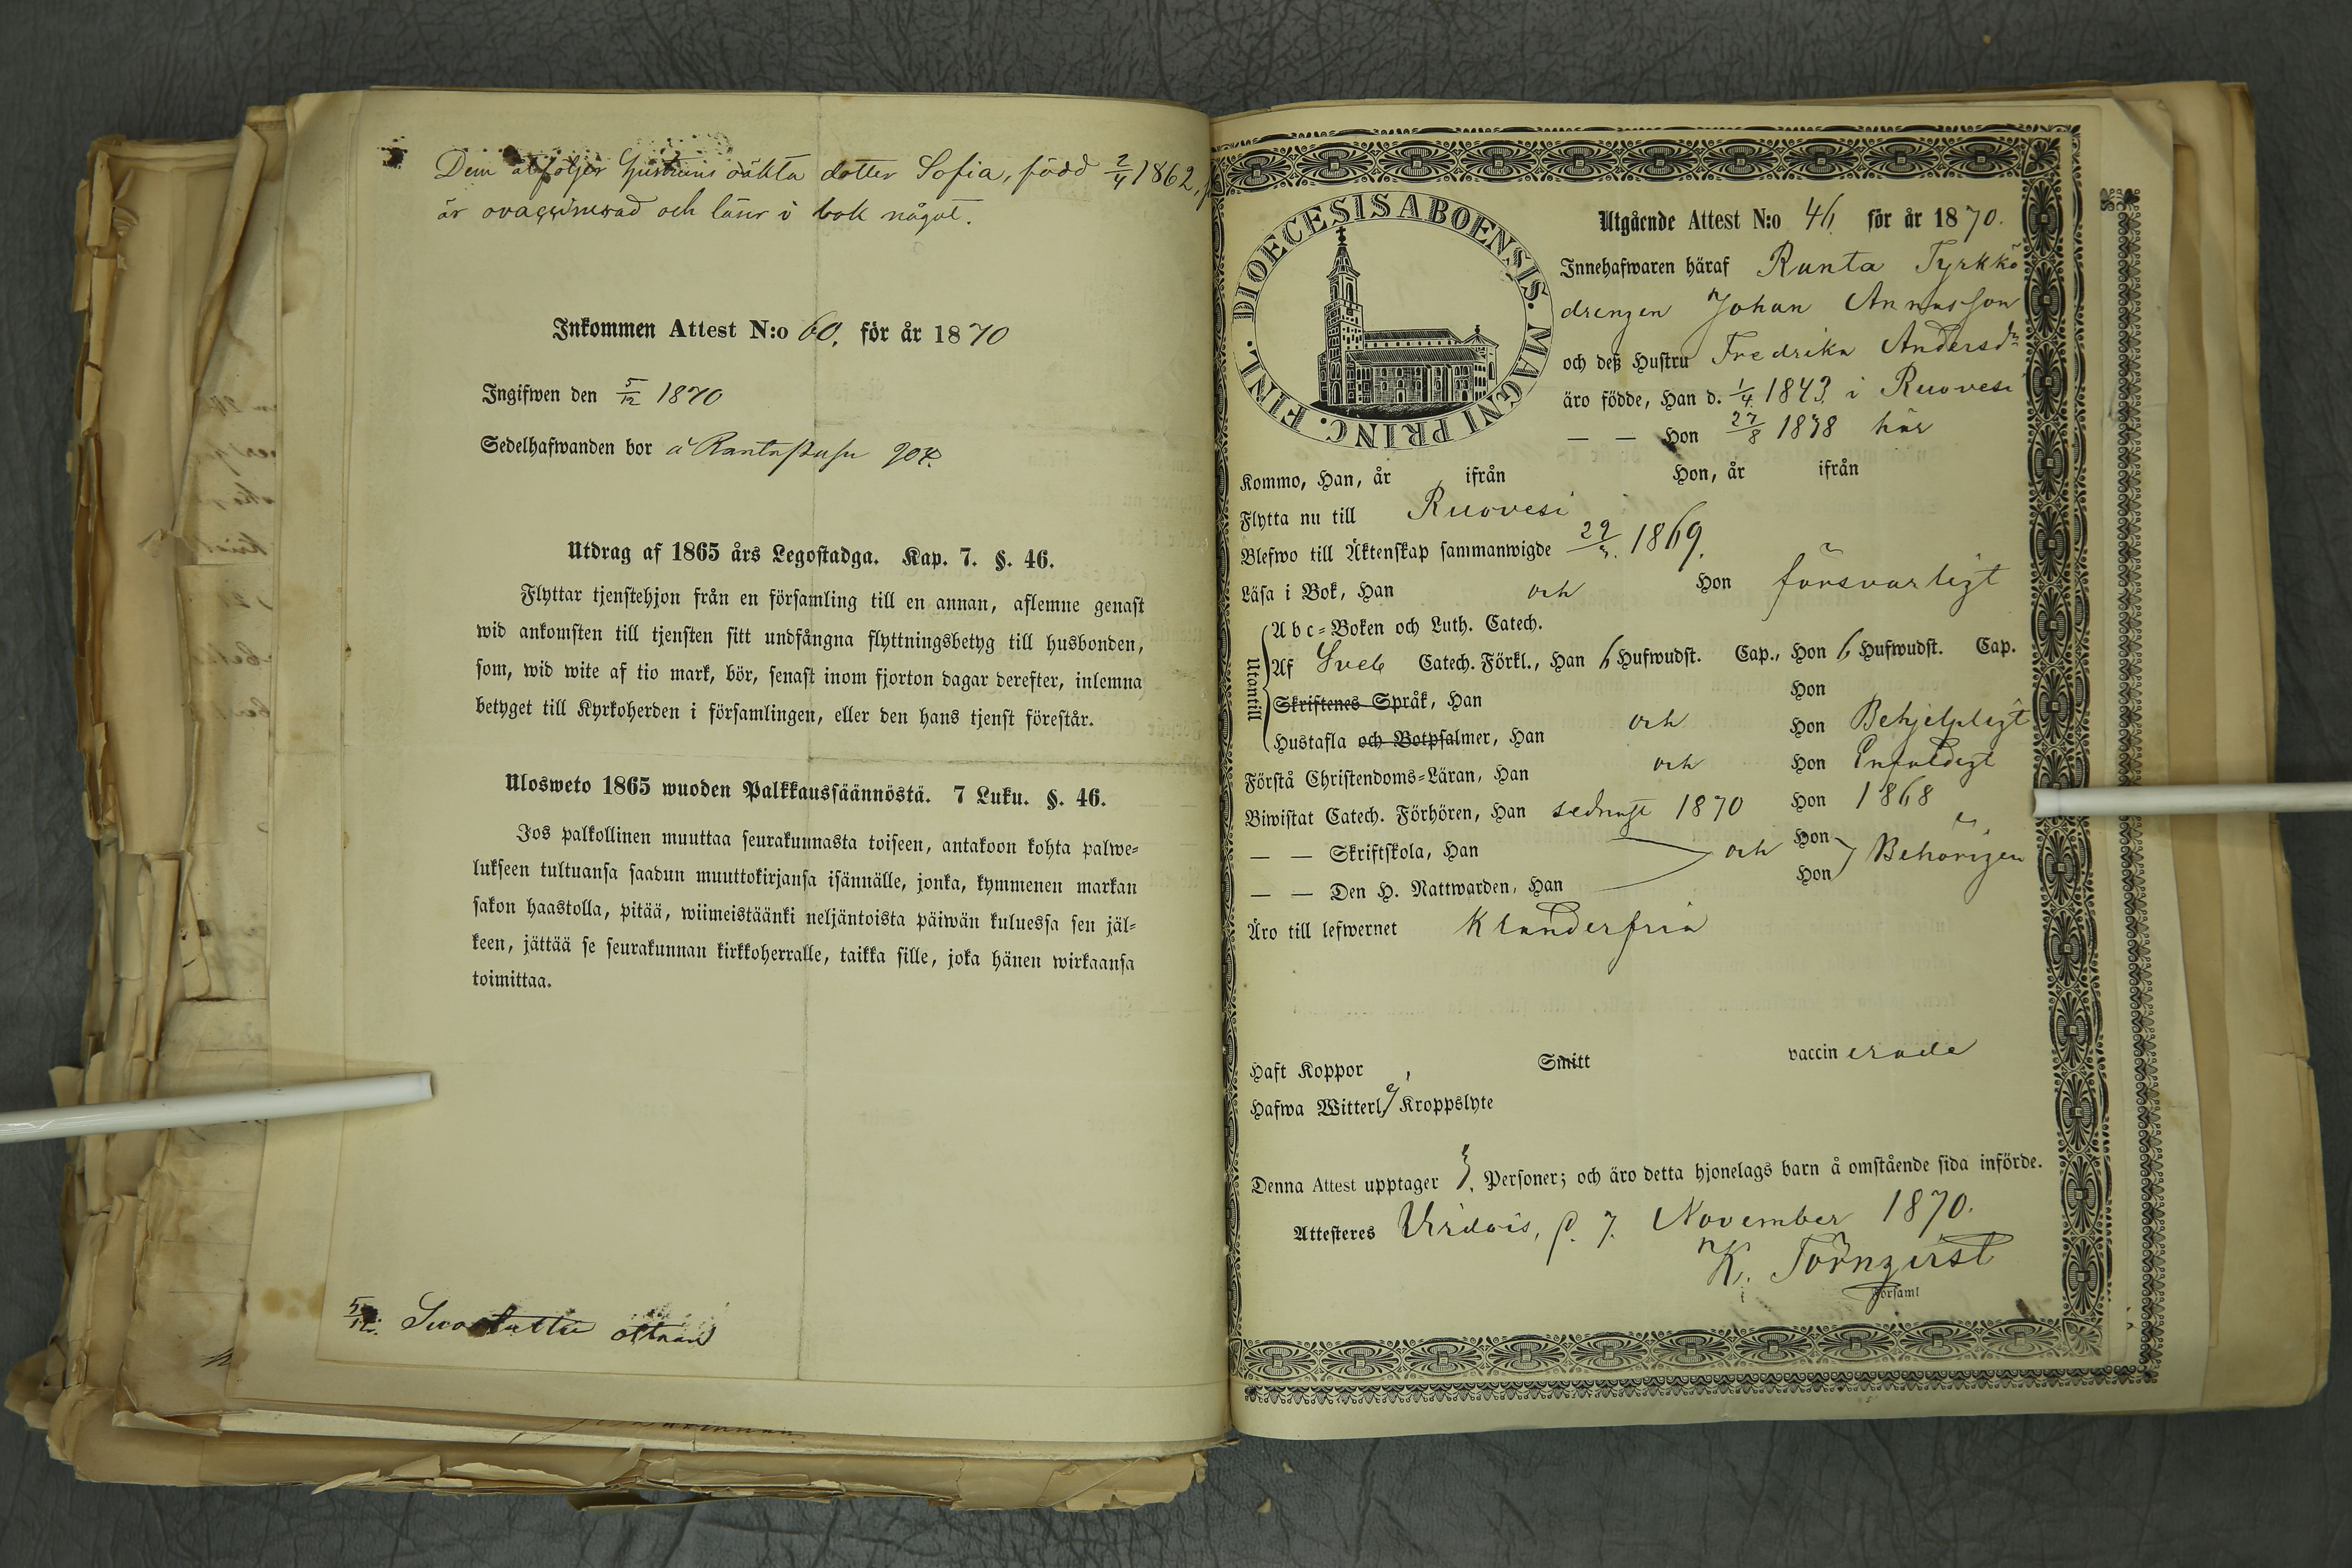 Dem åtföljer hustruns oäkta dotter Sofia, född 2/4 1862,
är ovaccinerad och läser i bok något.
Inkommen Attest N:o 60. för år 1870
Ingifwen den 5/12 1870
Sedelhafwanden bor å
Utdrag af 1865 års Legostadga. Kap. 7. §. 46.
Flyttar tjenstehjon från en församling till en annan, aflemne genast
wid ankomsten till tjensten sitt undfångna flyttningsbetyg till husbonden,
som, wid wite af tio mark, bör, senast inom fjorton dagar derefter, inlemna
betyget till Kyrkoherden i församlingen, eller den hans tjenst förestår.
Ulosweto 1865 wuoden Palkkaussäännöstä. 7 Luku. §. 46.
Jos palkollinen muuttaa seurakunnasta toiseen, antakoon kohta palwe=
lukseen tultuansa saadun muuttokirjansa isännälle, jonka, kymmenen markan
sakon haastolla, pitää, wiimeistäänki neljäntoista päiwän kuluessa sen jäl=
keen, jättää se seurakunnan kirkkoherralle, taikka sille, joka hänen wirkaansa
toimittaa.
5/12
DIOECESIS ABOENSIS. MAGNI PRINC. FINL.
Utgående Attest N:o 46 för år 1870.
Innehafwaren häraf Ranta Tyrkkö
drengen Johan Annasson
och deß Hustru Fredrika Andersdr
äro födde, Han d. 1/4 1843 i Ruovesi
— — Hon 27/8 1838 här
Kommo, Han, år ifrån Hon, år ifrån
Flytta nu till Ruovesi
Blefwo till Äktenskap sammanwigde 29/3. 1869.
Läsa i Bok, Han och Hon försvarligt
Utantill
Abc=Boken och Luth. Catech.
Af Sveb Catech. Förkl., Han 6 Hufwudst. Cap., Hon 6 Hufwudst. Cap.
Skriftenes Språk, Han Hon
Hustafla och Botpsalmer, Han och Hon Behjelpligt
Förstå Christendoms=Läran, Han och Hon Enfaldigt
Biwistat Catech. Förhören, Han sednast 1870 Hon 1868
— — Skriftskola, Han och Hon Behörigen
— — Den H. Nattwarden, Han Hon
Äro till lefwernet Klanderfria
Haft Koppor Smitt vaccinerade
Hafwa Witterl. ej Kroppslyte
Denna Attest upptager 3. Personer; och äro detta hjonelags barn å omstående sida införde.
Attesteres Virdois, p. 7. November 1870.
K. Törnqvist
Församl